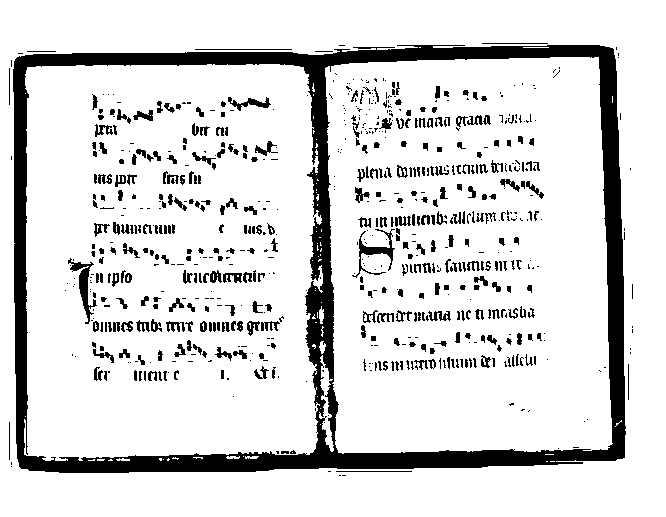 per
ius potestas su
per humerum e ius.
In ipso benedicentur
omnes tribus terre omnes gentes
ser vient e i.
Ave maria gracia
plena dominus tecum benedicta
tu in mulierib; alleluya
Spiritus sanctus in te
descendet maria ne timeas ha
bens in utero filium dei alleluy